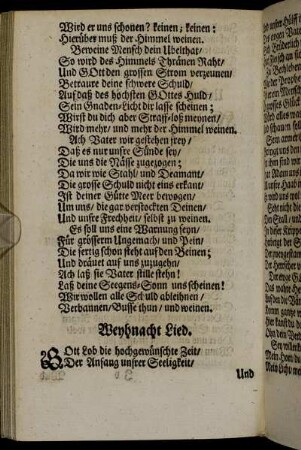 Wird er uns schonen? keinen; keinen:
Hierüber muß der Himmel weinen.
Beweine Mensch dein Ubelthat/
So wird des Himmels Thränen Raht/
Und GOtt den grossen Strom verzeunen/
Betraure deine schwere Schuld/
Auf daß des höchsten GOttes Huld/
Sein Gnaden-Licht dir lasse scheinen;
Wirst du dich aber Straff-loß meynen/
Wird mehr/ und mehr der Himmel weinen.
Ach Vater wir gestehen frey/
Daß es nur unsre Sünde sey/
Die uns die Nässe zugezogen;
Da wir wie Stahl/ und Deamant/
Die grosse Schuld nicht eins erkant/
Ist deiner Güte Meer bewogen/
Um uns/ die gar verstockten Deinen/
Und unsre Frechheit/ selbst zu weinen.
Es soll uns eine Warnung seyn/
Für grösserm Ungemach/ und Pein/
Die fertig schon steht auf den Beinen;
Und dräuet auf uns zuzugehn/
Ach laß sie Vater stille stehn!
Laß deine Seegens-Sonn uns scheinen!
Wir wollen alle Schuld ableihnen/
Verbannen/ Busse thun/ und weinen.
Weyhnacht Lied.
GOtt Lob die hochgewünschte Zeit/
Der Anfang unsrer Seeligkeit/
Und